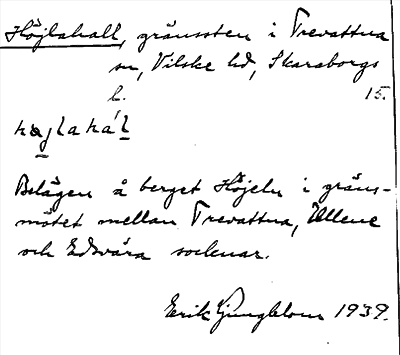 Höjlahall, gränssten i Trevattna
sn, Vilske hd, Skaraborgs
l. 15.
hajlahál
Belägen å berget Höjeln i gräns-
mötet mellan Trevattna, Ullene
och Edsvära socknar.
Erik Ljungblom 1939.